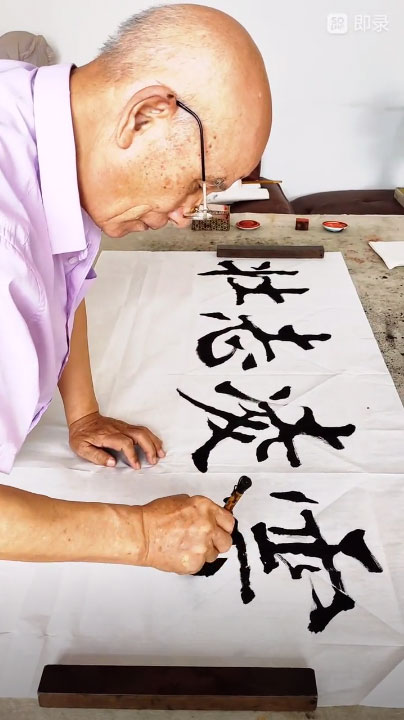 即录
壮志凌雲